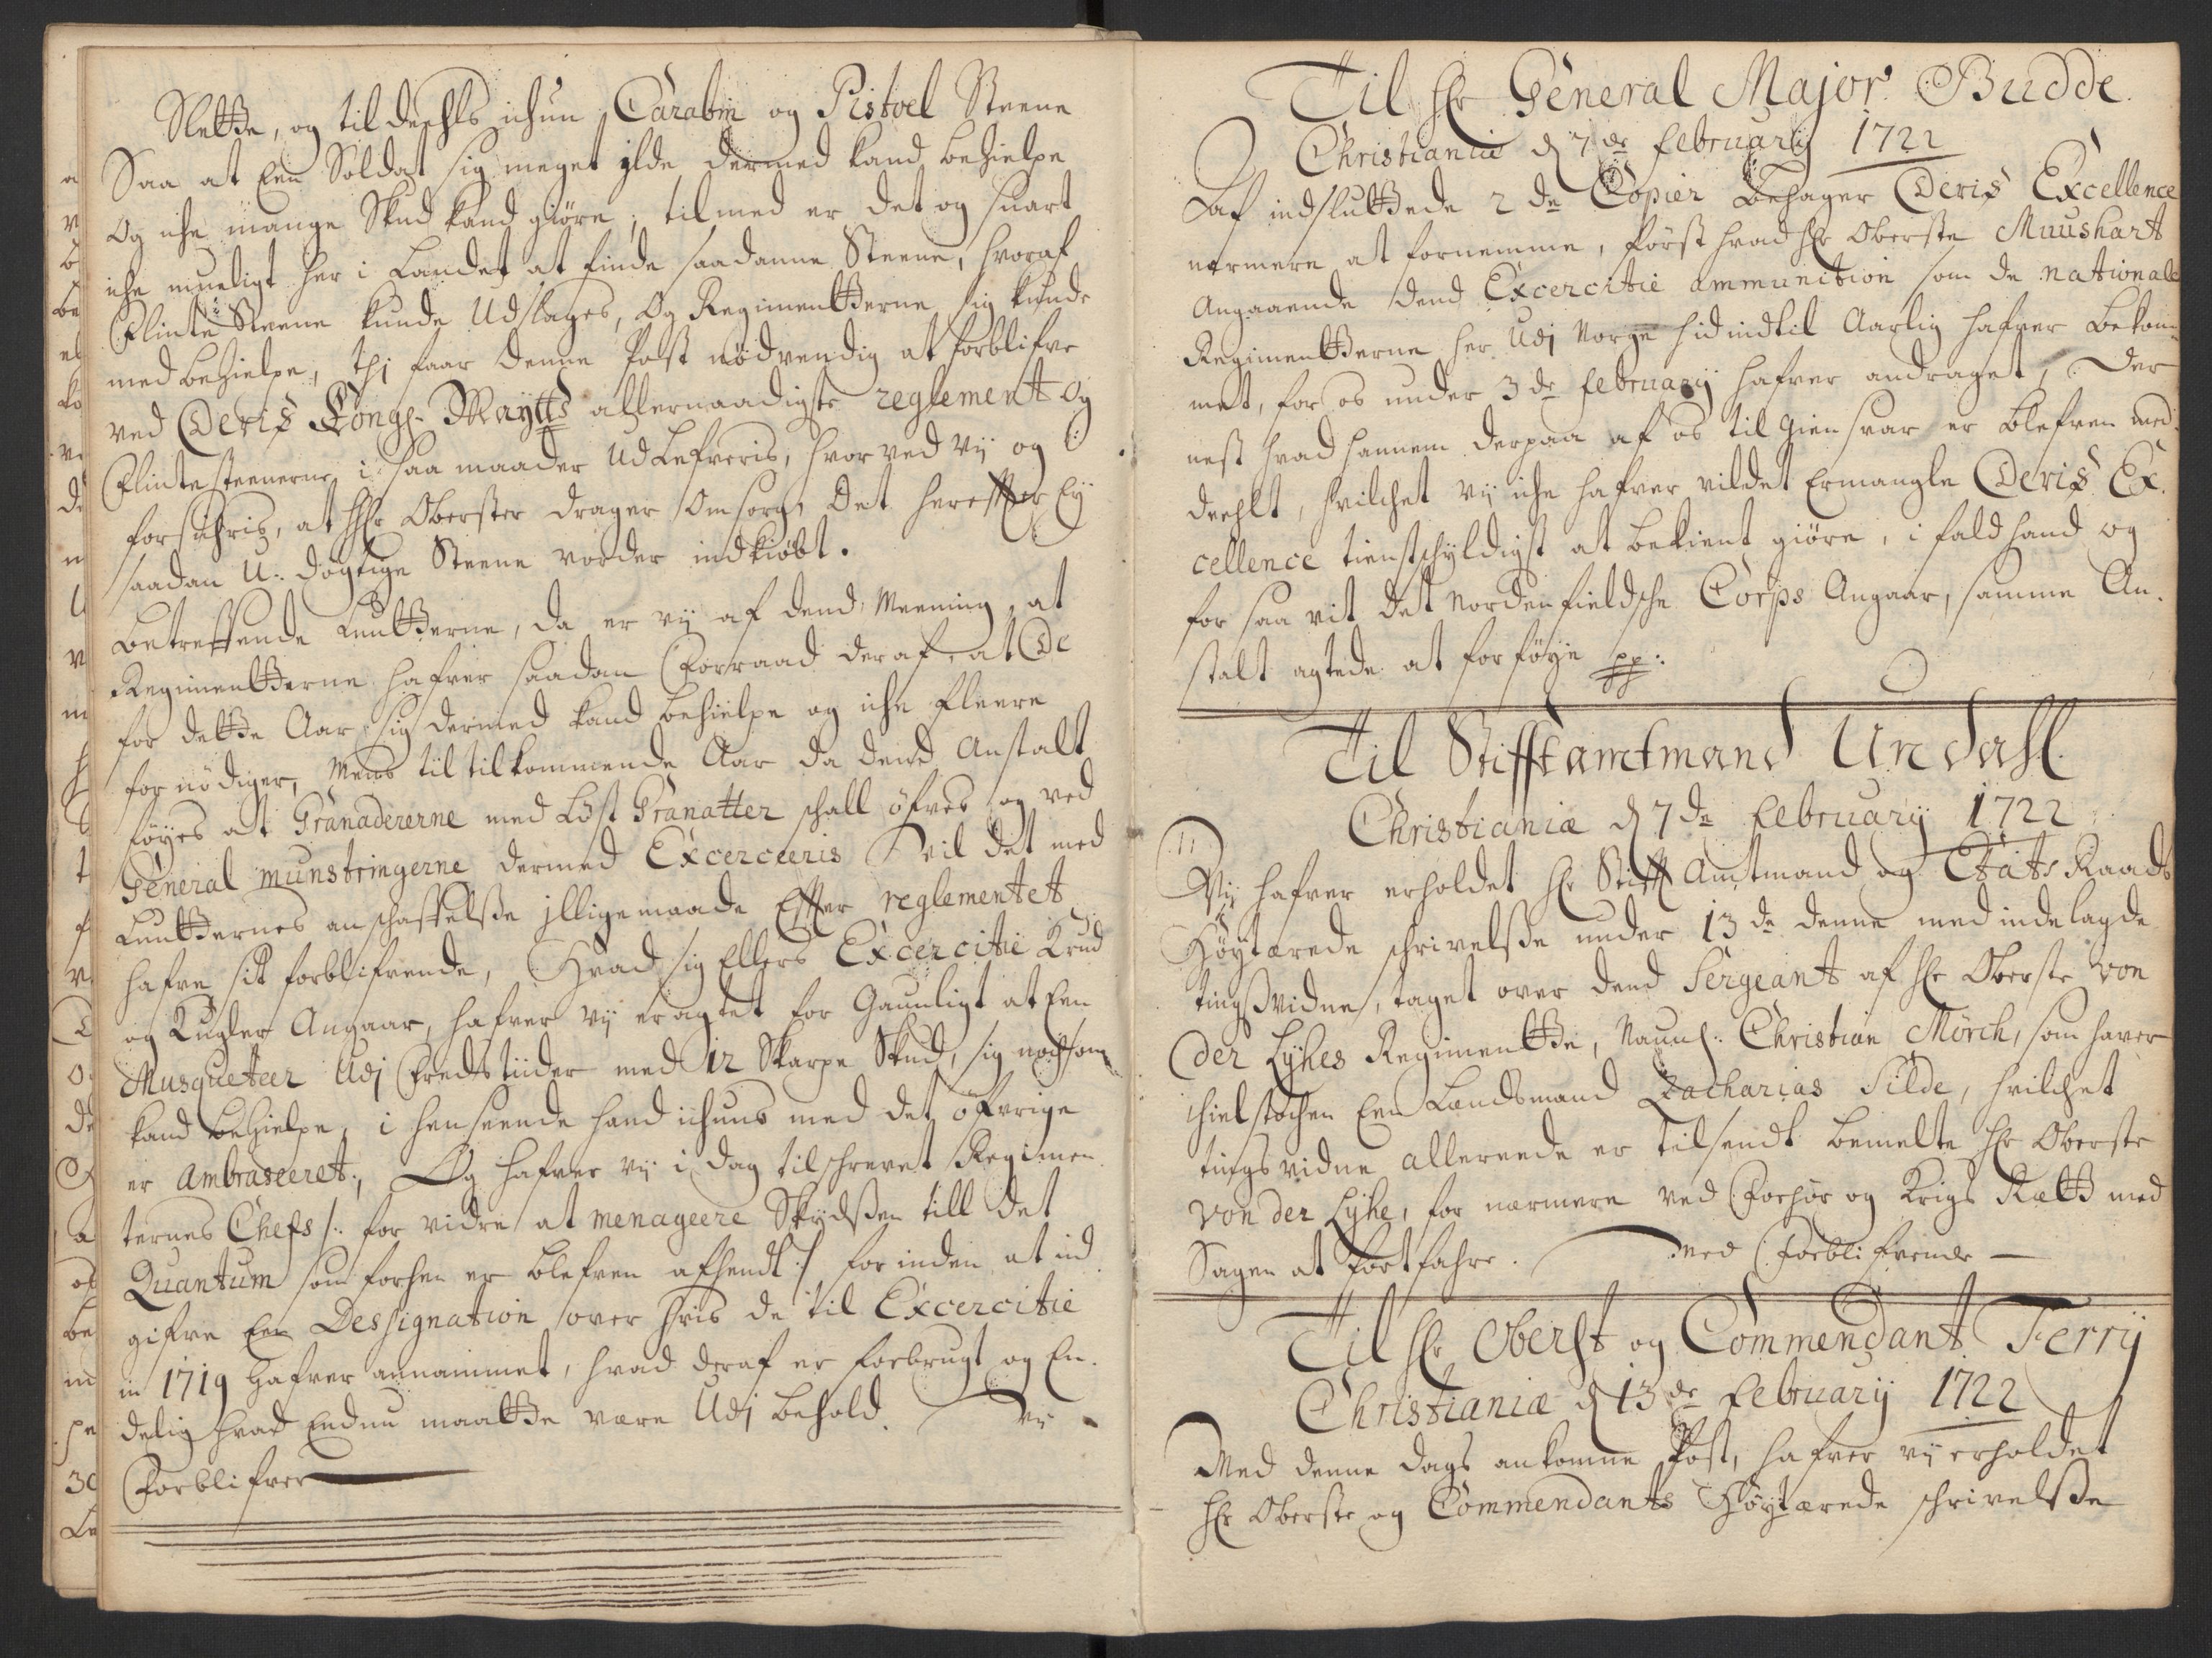 Slette, og til deehls ichun Carabin og Pistoel Steene
Saa at Een Soldat sig meget ilde dermed kand behielpe
Og iche mange Skud kand giøre, tilmed er det og snart
iche mueligt her i Landet at finde saadanne Steene, hvoraf
Flinte Steene kunde Udslages, Og Regimentterne sig kunde
med behielpe, thi faar denne Post nødvendig at forblifve
ved Deris Kongl. Maytts allernaadigste reglement og
Flintesteenerne i saa maader Udlefveris, hvorved vij og
forsichris, at Hr Oberster drager Omsorg, Det herefter Ey
saadan U: dögtige Steene vorder indkiøbt.
Betreffende Luntterne, da er vij af dend Meening, at
Regimentterne hafver saadan Forraad deraf, at De
for dette Aar sig dermed kand behielpe og iche fleere
fornödiger, Mens til tilkommende Aar da dend Anstalt
föyes at Granadererne med Löst Granatter schall öfves og ved
General munstringerne dermed Excerceeris vil det med
Luntternes anschaffelsse jlligemaade Effter reglementet
hafve sit forblifvende, Hvad sig Ellers Excercitie Krud
og Kugler Angaar, hafver vij eragtet for Gaunligt at Een
Musqueteer Udj Fredstiider med 12 Skarpe Skud, sig nochsom
kand behielpe, i henseende hand ichuns med det öfvrige
er Ambraseeret, Og hafver vij i dag tilschrevet Regimen
ternes Chefs /: for vidre at menageere Skydssen till det
Quantum som forhen er blefven afsendt :/ forinden at ind
gifve Een Dessignation over hvis de til Excercitie
in 1719 hafver annammet, hvad deraf er forbrugt og En-
delig hvad Endnu maatte være Udj behold. Vij
Forblifver
Til Hr General Major Budde.
Christianiæ d 7de February 1722
Af indsluttede 2de Copier behager Deris Excellence
nermere at fornemme, först hvad Hr Oberste Muushart
Angaaende dend Excercitie ammunition som de nationale
Regimentterne her Udj Norge hid indtil Aarlig hafver bekom-
met, for os under 3de February hafver andraget, Der
nest hvad hannem derpaa af os til Giensvar er blefven med-
deehlt, hvilchet vij iche hafver vildet Ermangle Deris Ex-
cellence tienstschyldigst at bekient giöre, i fald hand og
for saa vit det Nordenfieldsche Corps Angaar, samme An-
stalt agtede at forföye pp:
Til Stifftamtmand Undahl.
Christianiæ d 7de February 1722
Vij hafver erholdet Hr Stifft Amtmand og Etats Raads
Höytærede schrivelsse under 13de denne med indelagde
tingsvidne, taget over dend Sergeant af Hr Oberste von
der Lyhes Regimentte, Naunl: Christian Mörch, som haver
ihielstochen Een Landsmand Zacharias Silde, hvilchet
tingsvidne allereede er tilsendt bemelte Hr Oberste
von der Lyhe, for nærmere ved Forhör og Krigs Rætt med
Sagen at fortfahre. Med Forblifvende
Til Hr Oberst og Commendant Ferry
Christianiæ d 13de February 1722
Med denne dags ankomne Post, hafver vij erholdet
Hr Oberste og Commendants Höytærede schrivelsse